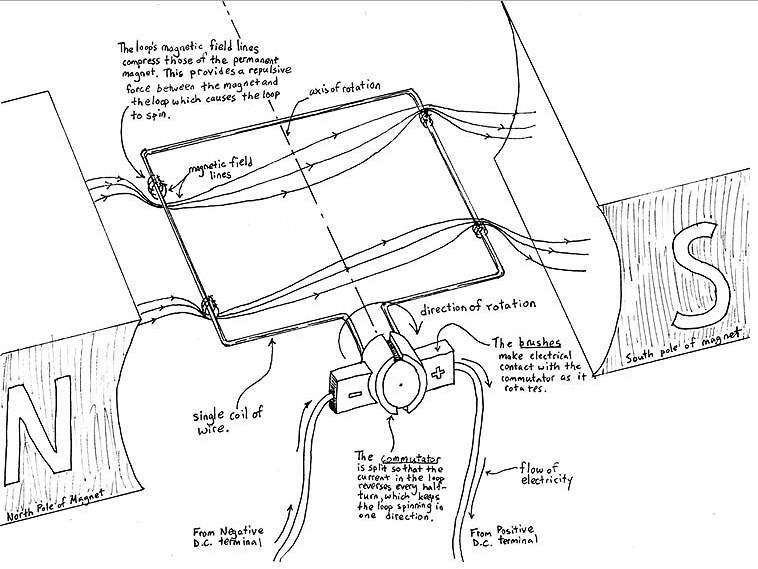 The loop's magnetic field lines
compress those of the permanent
magnet. This provides a repulsive
force between the magnet and
the loop which causes the loop
to spin.
axis of rotation
magnetic field
lines
direction of rotation
The brushes
make electrical
contact with the
commutator as it
rotates.
S
South pole of magnet
N
North Pole of Magnet
single coil of
wire.
-
+
The commutator
is split so that the
current in the loop
reverses every half-
turn, which keeps
the loop spinning in
one direction.
flow of
electricity
From Negative
D.C. terminal
From Positive
D.C. terminal